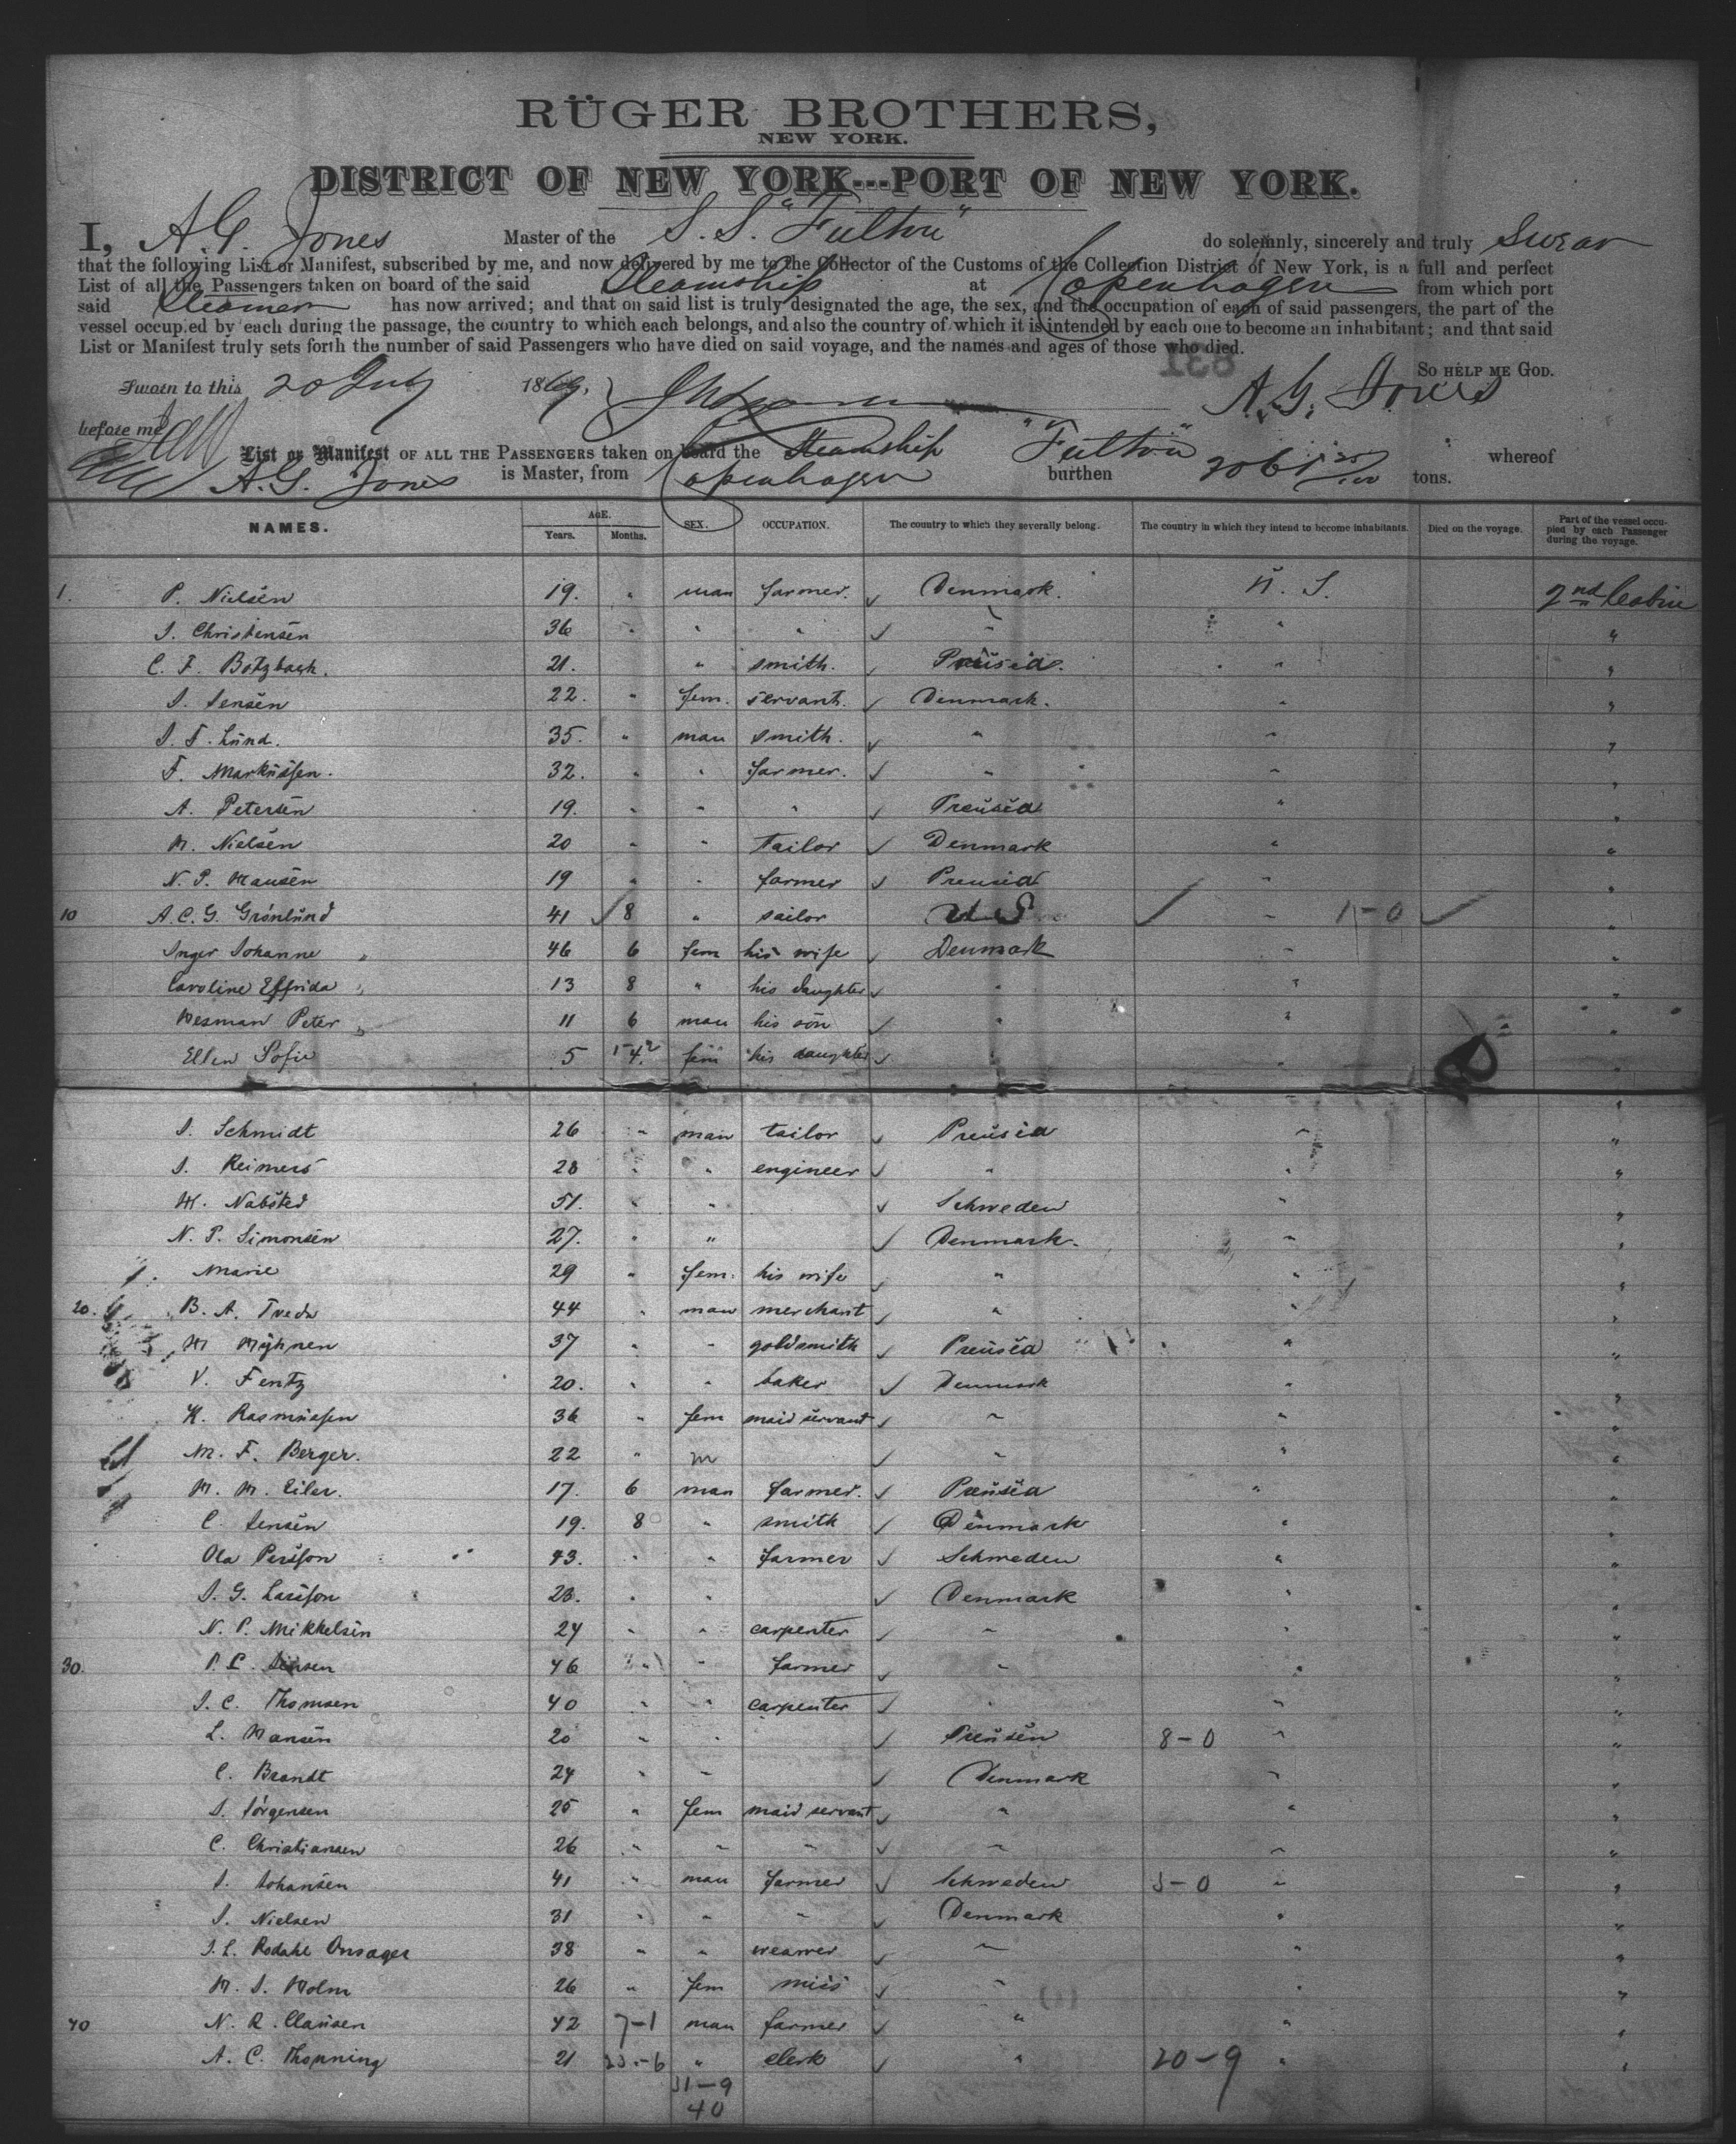 RÜGER BROTHERS,
NEW YORK.
DISTRICT OF NEW YORK---PORT OF NEW YORK.
I, A. G. Jones Master of the S. S. "Fulton" do solemnly, sincerely and truly Swear
that the following List or Manifest, subscribed by me, and now delivered by me to the Collector of the Customs of the Collection District of New York, is a full and perfect
List of all the Passengers taken on board of the said Steamship at Copenhagen from which port
said Steamer has now arrived; and that on said list is truly designated the age, the sex, and the occupation of each of said passengers, the part of the
vessel occupied by each during the passage, the country to which each belongs, and also the country of which it is intended by each one to become an inhabitant; and that said
List or Manifest truly sets forth the number of said Passengers who have died on said voyage, and the names and ages of those who died.
So help me God.
Sworn to this 20 July 1869. A. G. Jones
before me
List or Manifest OF ALL THE PASSENGERS taken on board the Steamship "Fulton" whereof
A. G. Jones is Master, from Copenhagen burthen 2061 tons.
NAMES. AGE. Years. Months. SEX. OCCUPATION. The country to which they severally belong. The country in which they intend to become inhabitants. Died on the voyage. Part of the vessel occupied by each Passenger during the voyage.
1. P. Nielsen 19. " man farmer. Denmark. U. S. 2nd Cabin
J. Christensen 36 " " " " " "
C. F. Botzbach. 21. " smith. Preusia. " "
J. Jensen 22. " fem. servant. Denmark. " "
J. F. Lund. 35. " man smith. " " "
F. Markussen. 32. " " farmer. " " "
A. Petersen 19. " " " Preusia " "
M. Nielsen 20 " " tailor Denmark " "
N. P. Hansen 19 " " farmer Preusia " "
10 A. C. G. Grönlund 41 8 " sailor U S " 1-0 "
Inger Johanne " 46 6 fem his wife Denmark " "
Caroline Elfrida " 13 8 " his daughter " " "
Herman Peter " 11 6 man his son " " "
Ellen Sofie 5 fem his daughter " " "
J. Schmidt 26 " man tailor Preusia " "
J. Reimers 28 " " engineer " " "
M. Nabsted 51. " " Schweden " "
N. P. Simonsen 27. " " Denmark. " "
Marie 29 " fem. his wife " " "
20. B. A. Tvede 44 " man merchant " " "
H Mÿhnen 37 " " goldsmith Preusia " "
V. Fentz 20. " " baker Denmark " "
K. Rasmussen 36 " fem maid servant " " "
M. F. Berger. 22 " m " " "
H. M. Eiler. 17. 6 man farmer. Preusia " "
C. Jensen 19. 8 " smith Denmark " "
Ola Persson 43. " " farmer Schweden " "
J. G. Larsson 28. " " Denmark " "
N. P. Mikkelsen 24 " " carpenter " " "
30. P. L. Jensen 46 " " farmer " " "
J. C. Thomsen 40 " " carpenter " " "
L. Hansen 20 " " Preusen 8-0 " "
C. Brandt 24 " " Denmark " "
J. Jörgensen 25 " fem maid servant " " "
C. Christiansen 26 " " " " " "
J. Johansen 41 " man farmer Schweden 3-0 " "
J. Nielsen 31 " " " Denmark " "
J. L. Rodahl Onsager 38 " " weawer " " "
H. J. Holm 26 " fem miss " " "
40 N. R. Clausen 42 7-1 man farmer " " "
A. C. Thonning 21 23-6 " clerk " 20-9 " "
31-9
40